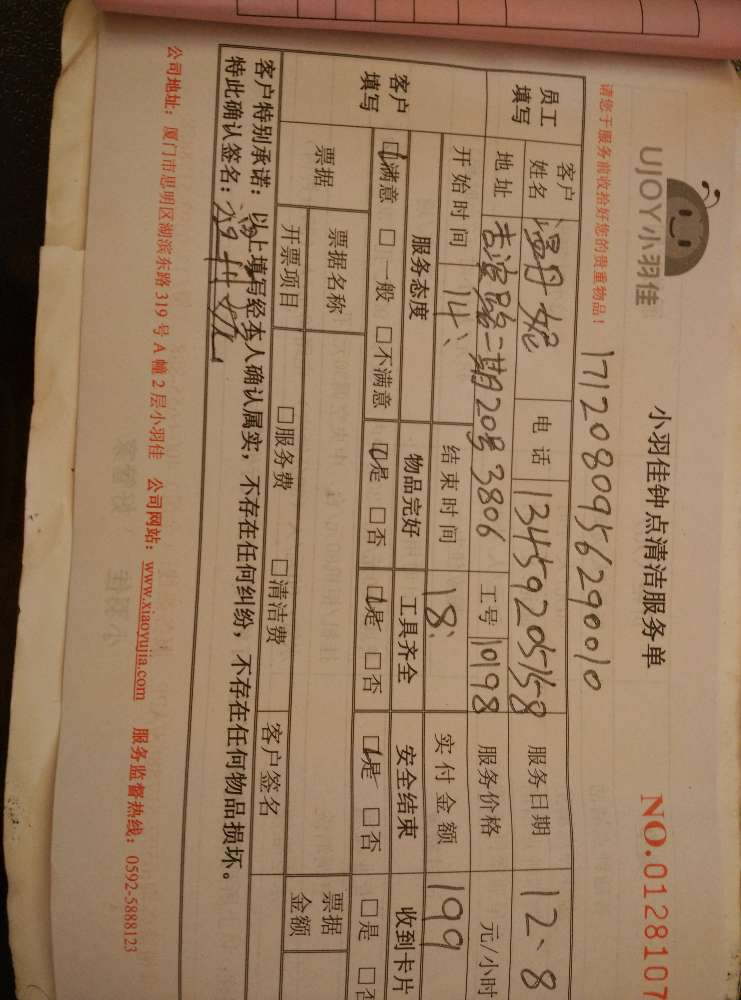 UJOY小羽佳
小羽佳钟点清洁服务单
NO.0128107
请您于服务前收拾好您的贵重物品！
1712080956290010
员工填写
客户姓名
温丹妮
电话
13459205158
服务日期
12、8
地址
二期20号3806
工号
10198
服务价格
元/小时
开始时间
14:
结束时间
18:
实付金额
199
客户填写
服务态度
物品完好
工具齐全
安全结束
收到卡片
☑满意 □一般 □不满意
☑是 □否
☑是 □否
☑是 □否
□是 □否
票据
票据名称
票据金额
开票项目
□服务费 □清洁费
客户签名
客户特别承诺：以上填写经本人确认属实，不存在任何纠纷，不存在任何物品损坏。
特此确认签名：
公司地址：厦门市思明区湖滨东路319号A幢2层小羽佳 公司网站：www.xiaoyujia.com 服务监督热线：0592-5888123